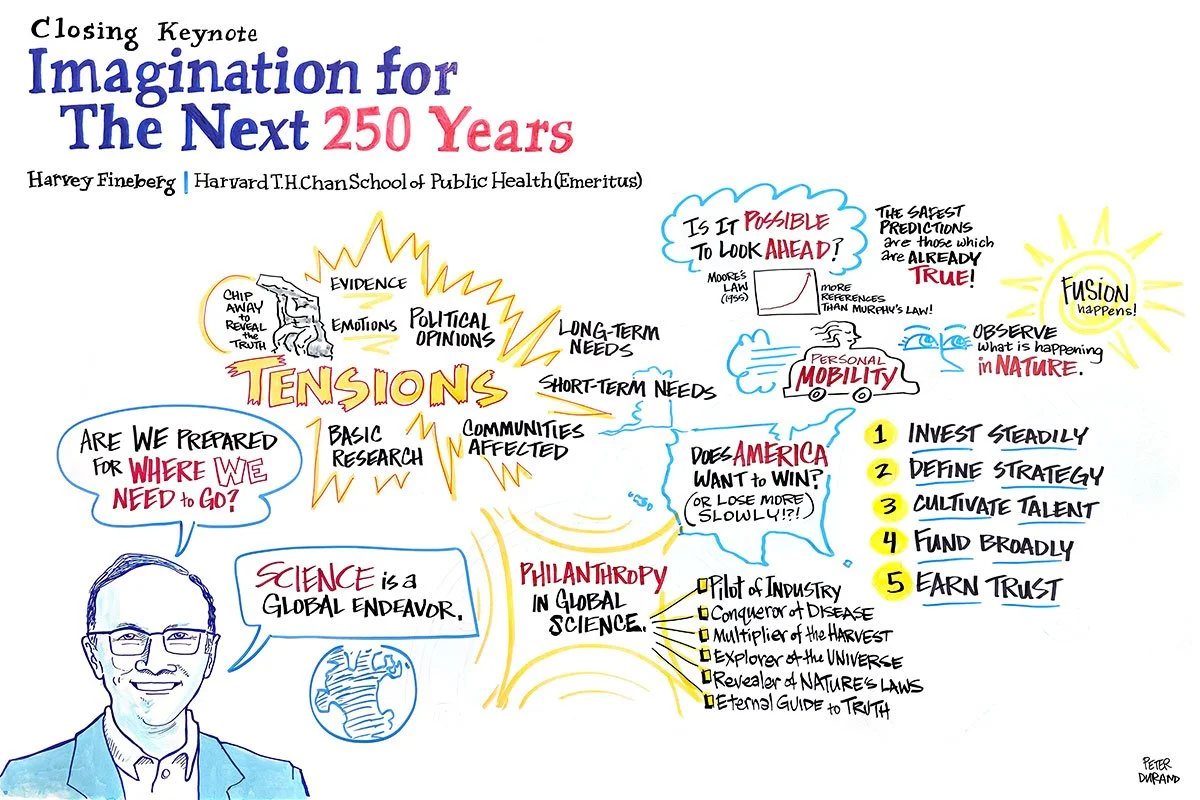 Closing Keynote
Imagination for
The Next 250 Years
Harvey Fineberg | Harvard T.H.Chan School of Public Health (Emeritus)
CHIP
AWAY
to
REVEAL
the
TRUTH
EVIDENCE
EMOTIONS
POLITICAL
OPINIONS
LONG-TERM
NEEDS
TENSIONS
SHORT-TERM NEEDS
BASIC
RESEARCH
COMMUNITIES
AFFECTED
IS IT POSSIBLE
TO LOOK AHEAD?
THE SAFEST
PREDICTIONS
are those which
are ALREADY
TRUE!
MOORE'S
LAW
(1955)
MORE
REFERENCES
THAN MURPHY'S LAW!
FUSION
happens!
PERSONAL
MOBILITY
OBSERVE
what is happening
in NATURE.
ARE WE PREPARED
FOR WHERE WE
NEED to GO?
DOES AMERICA
WANT to WIN?
(OR LOSE MORE
SLOWLY!?!)
1 INVEST STEADILY
2 DEFINE STRATEGY
3 CULTIVATE TALENT
4 FUND BROADLY
5 EARN TRUST
SCIENCE is a
GLOBAL ENDEAVOR.
PHILANTHROPY
IN GLOBAL
SCIENCE.
Pilot of INDUSTRY
Conqueror of DISEASE
Multiplier of the HARVEST
Explorer of the UNIVERSE
Revealer of NATURE'S LAWS
Eternal GUIDE to TRUTH
PETER
DURAND